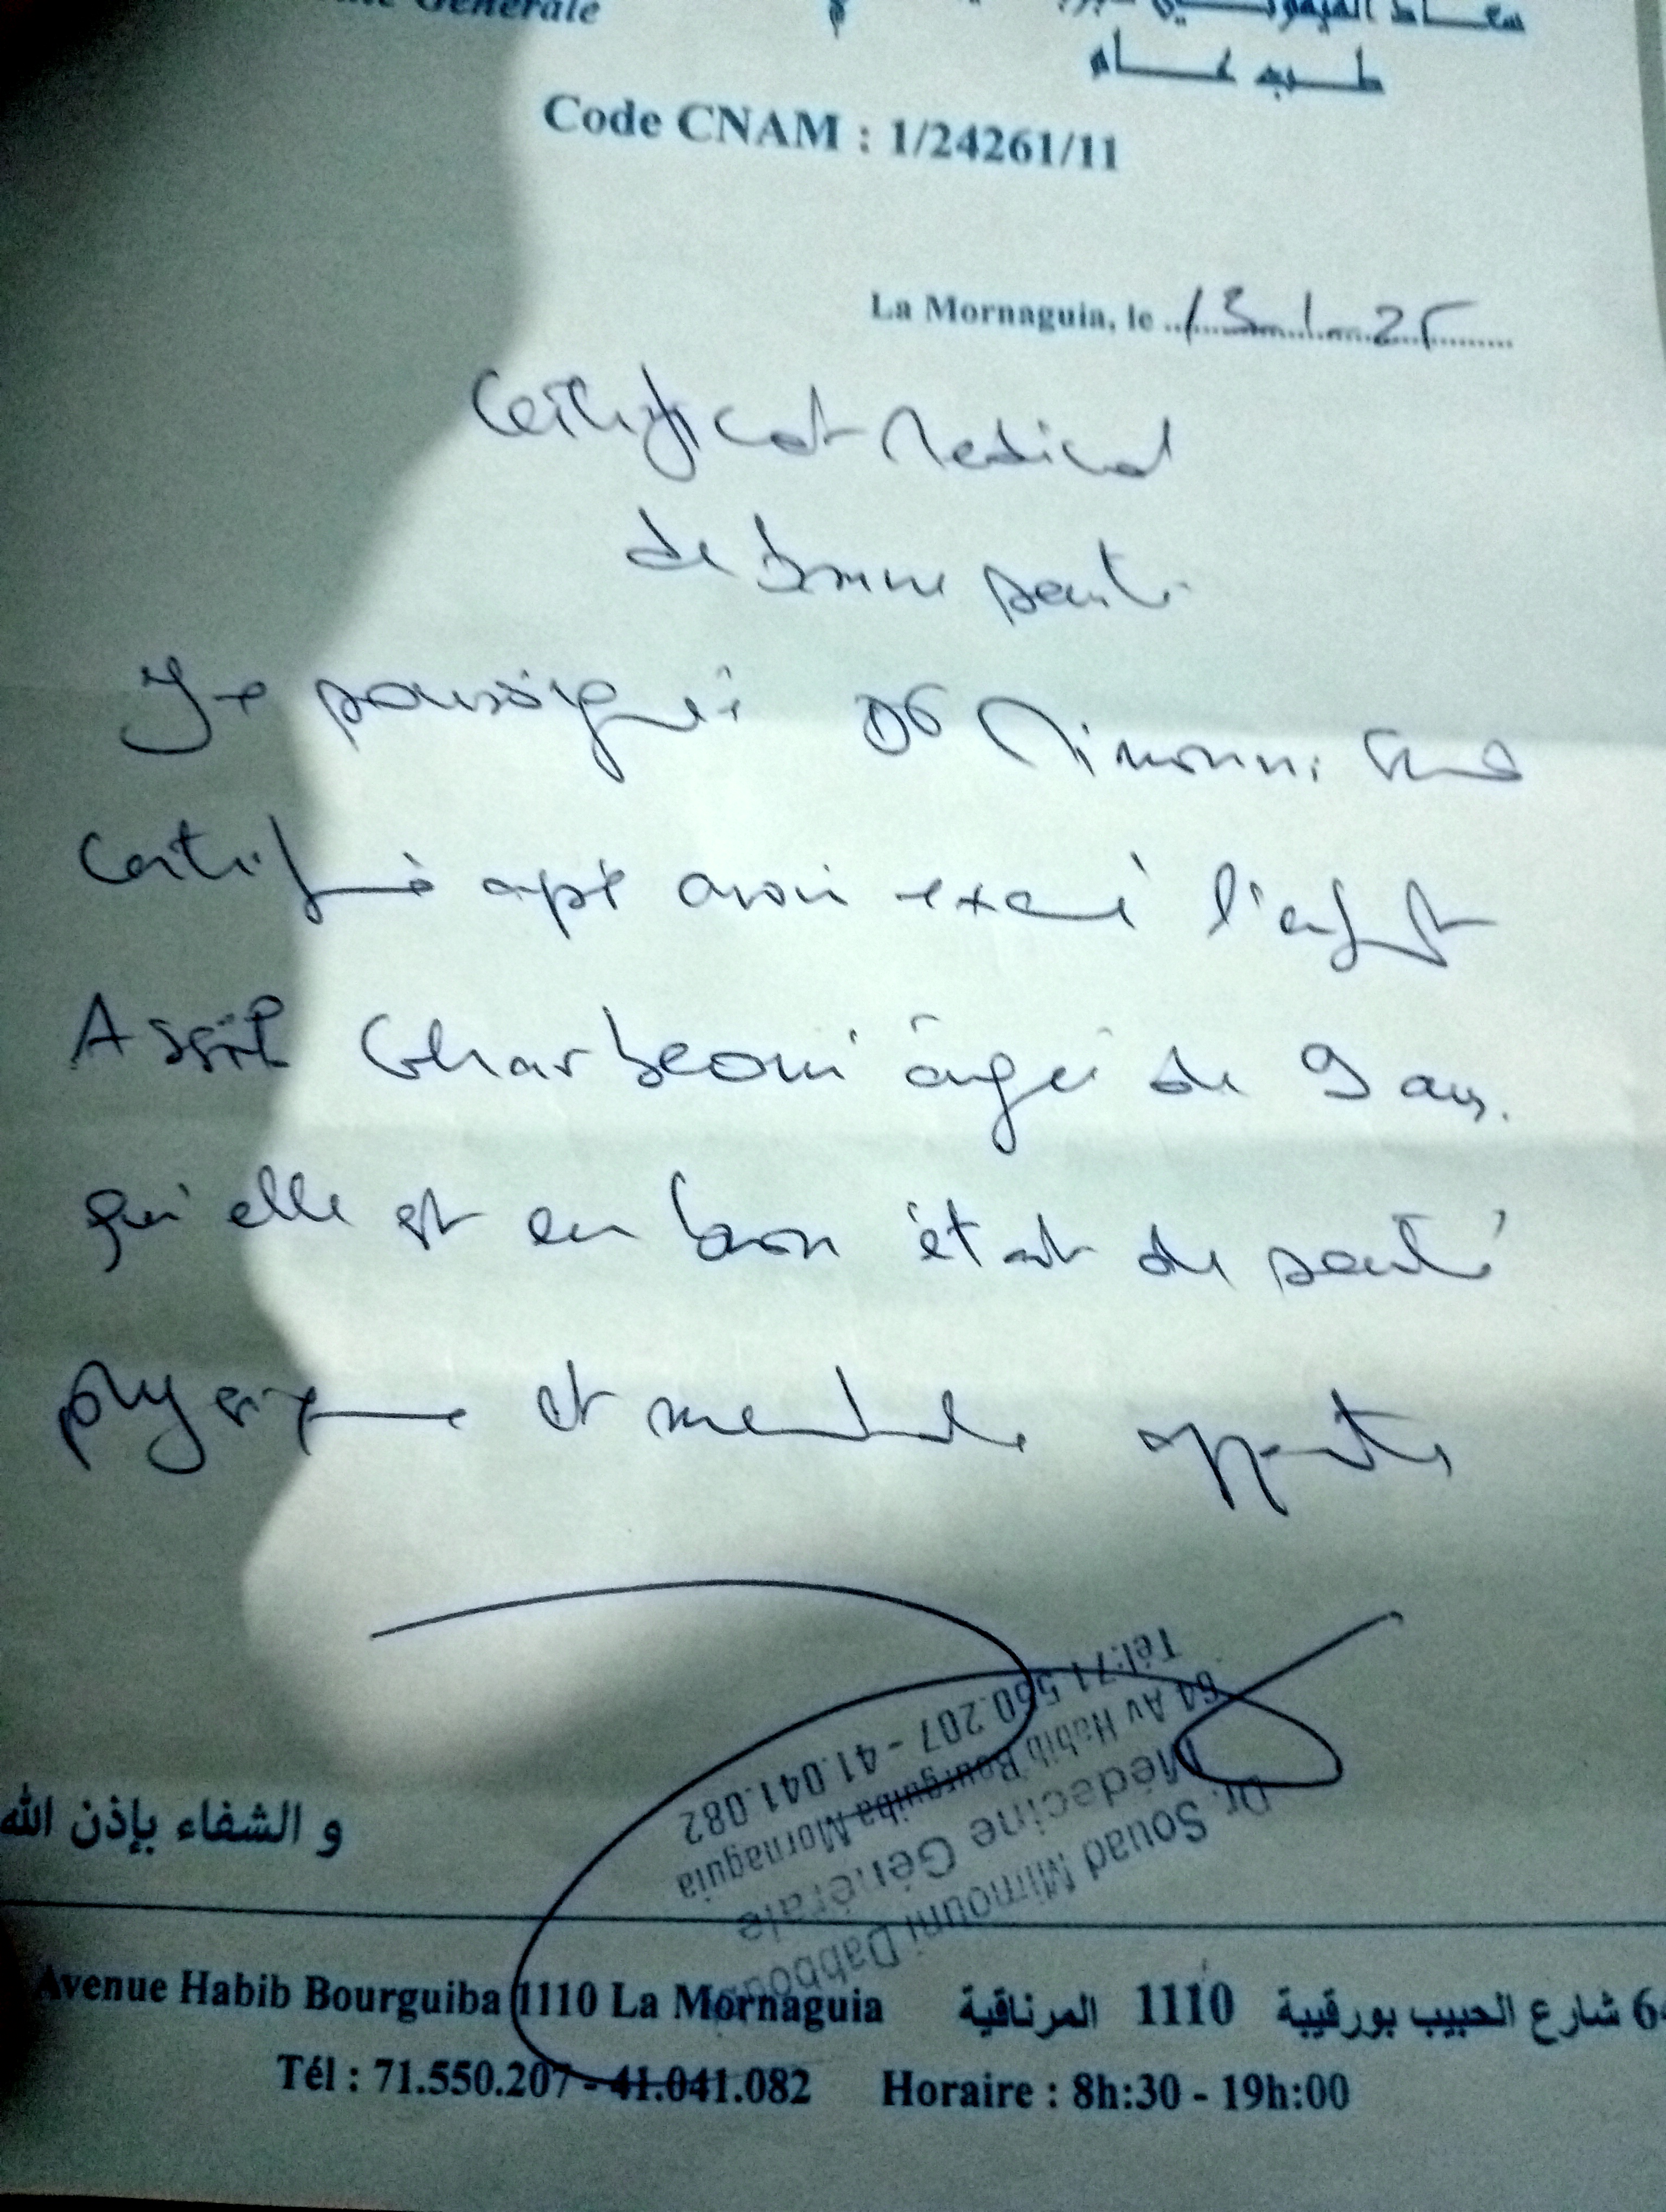 Générale
طـــب عـــــام
Code CNAM : 1/24261/11
La Mornaguia, le 13.1.25
Certificat Medical
de bonne santé
Je soussigné Dr Mimouni
Certifié apr avoir exané l'enft
Assil Gharbaoui âgé de 9 ans.
qu'elle est en bon état de santé
physique et mentale apparente
Dr. Souad Mimouni Dabbou
Médecine Générale
64 Av Habib Bourguiba Mornaguia
Tél:71.550.207 - 41.041.082
و الشفاء بإذن الله
Avenue Habib Bourguiba 1110 La Mornaguia
64 شارع الحبيب بورقيبة 1110 المرناقية
Tél : 71.550.207 - 41.041.082 Horaire : 8h:30 - 19h:00